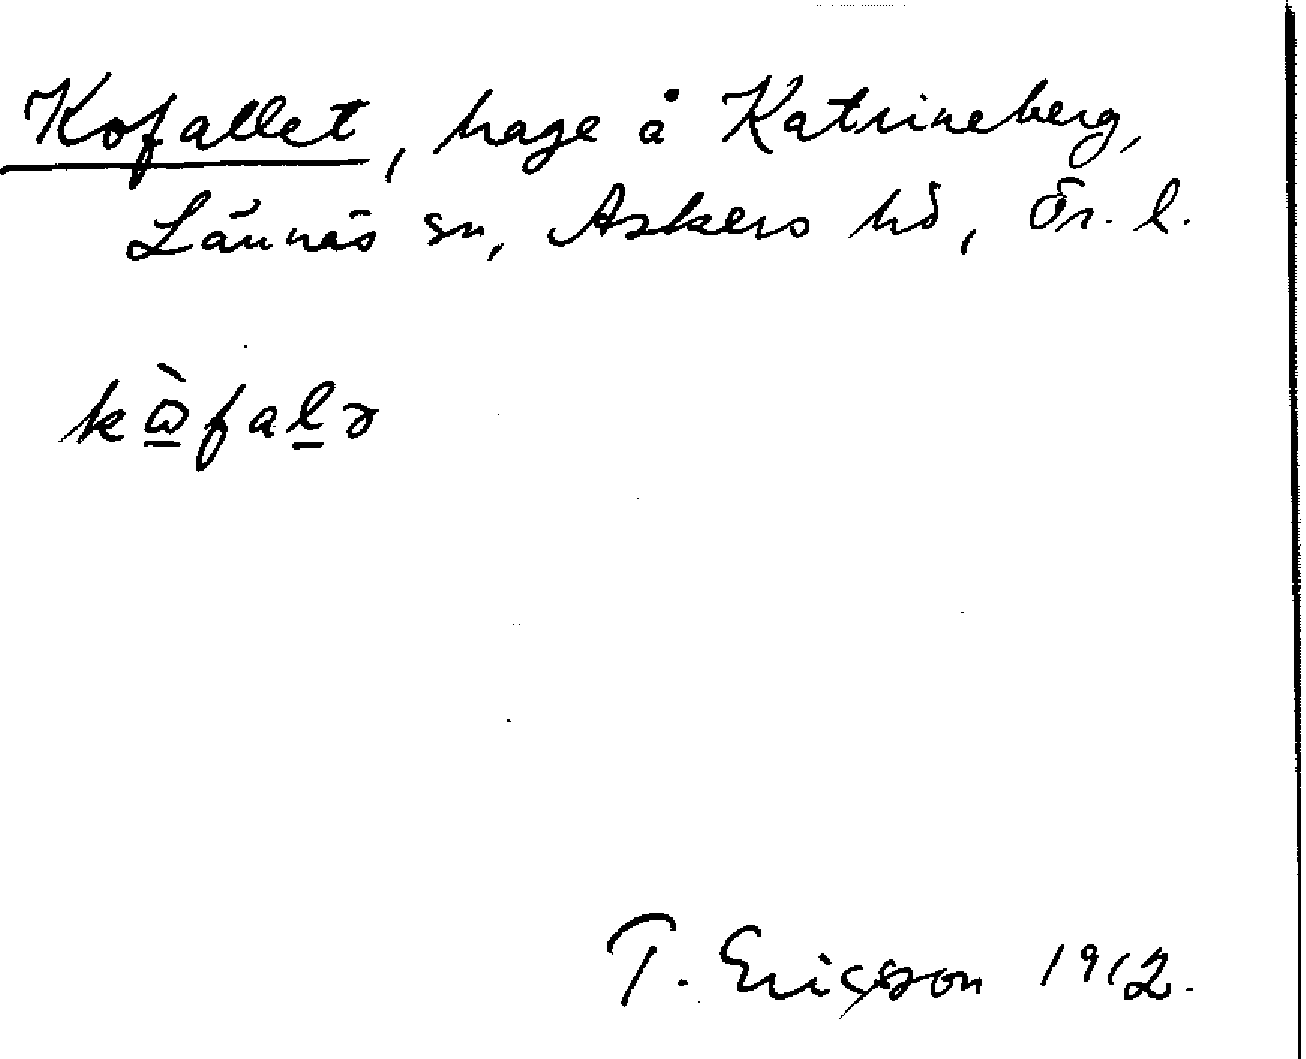 Kofallet, hage å Katrineberg,
Lännäs sn, Askers hd, Ör. l.
kὼ̲fal̲ə
T. Ericsson 1912.